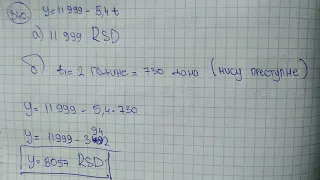 340. y = 11 999 - 5,4 t
а) 11 999 RSD
б) t₁ = 2 године = 730 дана (нису преступне)
y = 11 999 - 5,4 · 730
y = 11999 - 3942
y = 8057 RSD